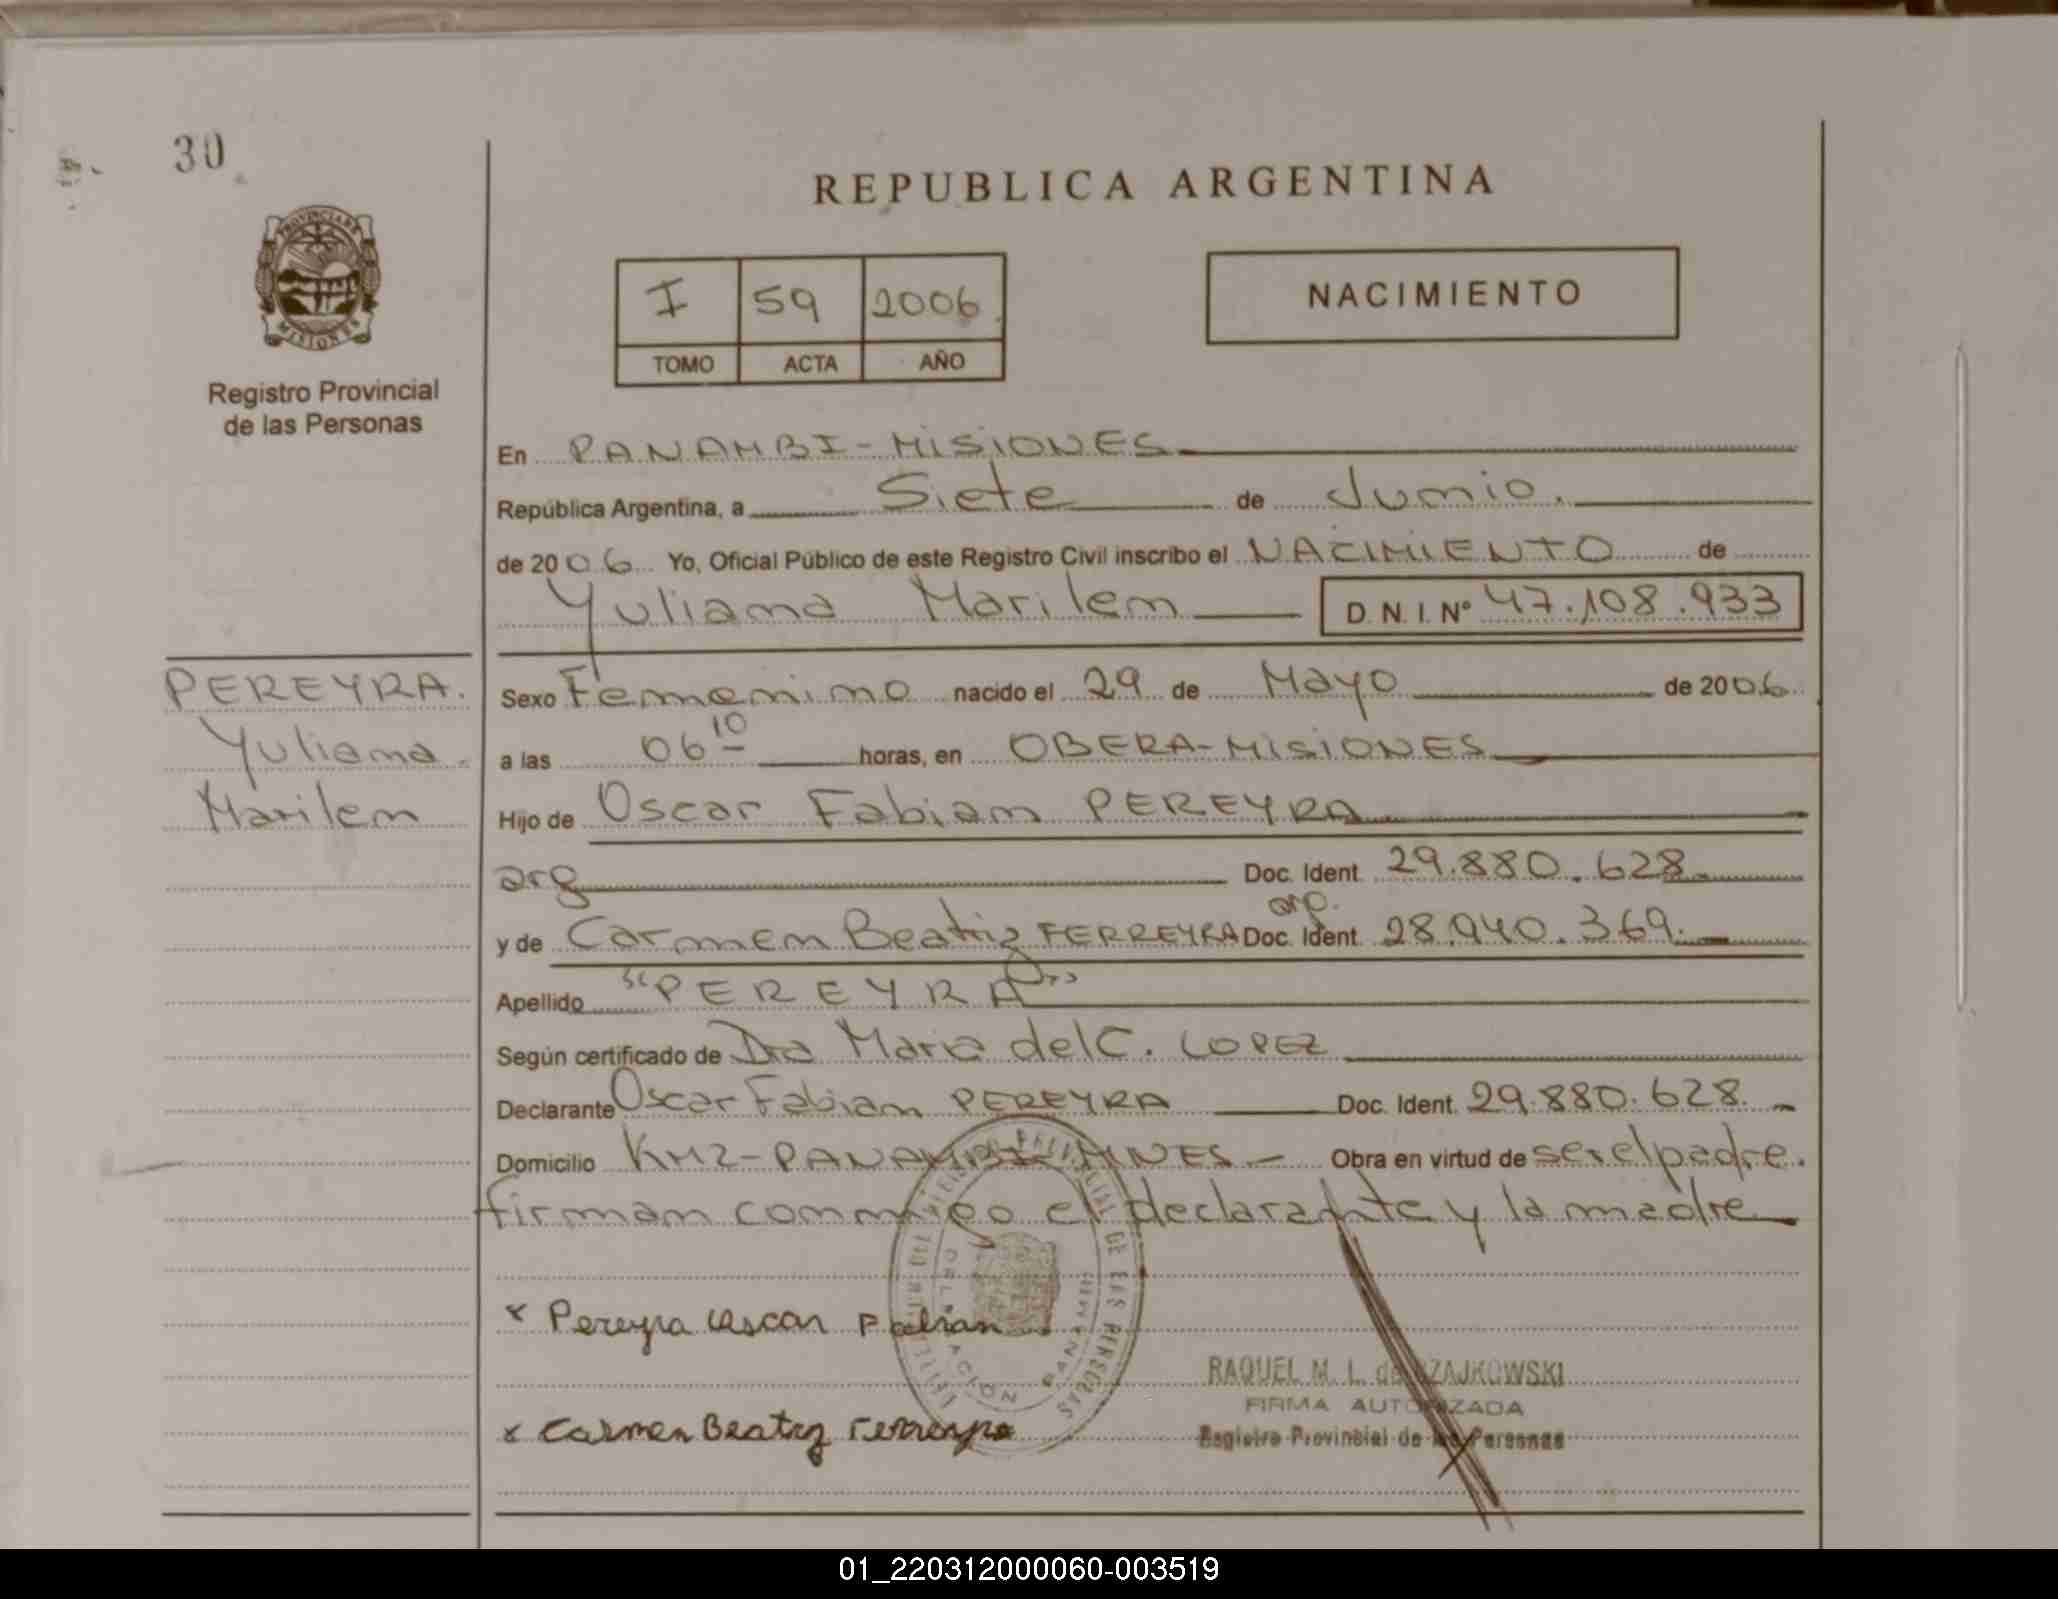 30
REPUBLICA ARGENTINA
PROVINCIA DE
MISIONES
Registro Provincial
de las Personas
I 59 2006
TOMO ACTA AÑO
NACIMIENTO
En PANAMBI-MISIONES
República Argentina, a Siete de Junio.
de 2006 Yo, Oficial Público de este Registro Civil inscribo el NACIMIENTO de
Yuliana Marilen D. N. I. Nº 47.108.933
PEREYRA.
Yuliana
Marilen
Sexo Femenino nacido el 29 de Mayo de 2006
a las 06 10 horas, en OBERA-MISIONES
Hijo de Oscar Fabian PEREYRA
arg Doc. Ident. 29.880.628
y de Carmen Beatriz FERREYRA arg. Doc. Ident. 28.940.369.
Apellido "PEREYRA"
Según certificado de Dra Maria del C. LOPEZ
Declarante Oscar Fabian PEREYRA Doc. Ident. 29.880.628.
Domicilio KM2-PANAMBI Obra en virtud de ser el padre.
firman conmigo el declarante y la madre
x Pereyra Oscar Fabian
x Carmen Beatriz Ferreyra
DELEGACION PANAMBI
RAQUEL M. L. de
FIRMA AUTORIZADA
Registro Provincial de las Personas
01_220312000060-003519